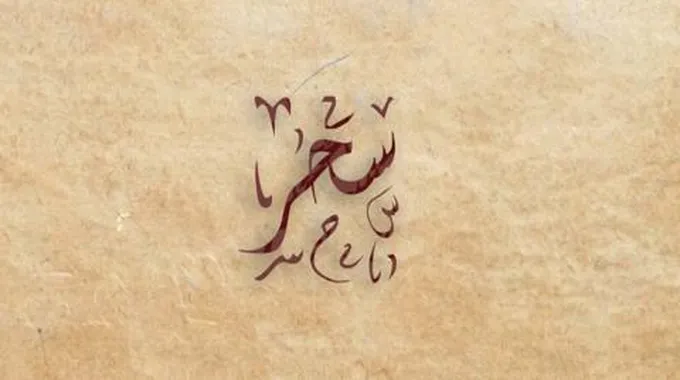 سحر